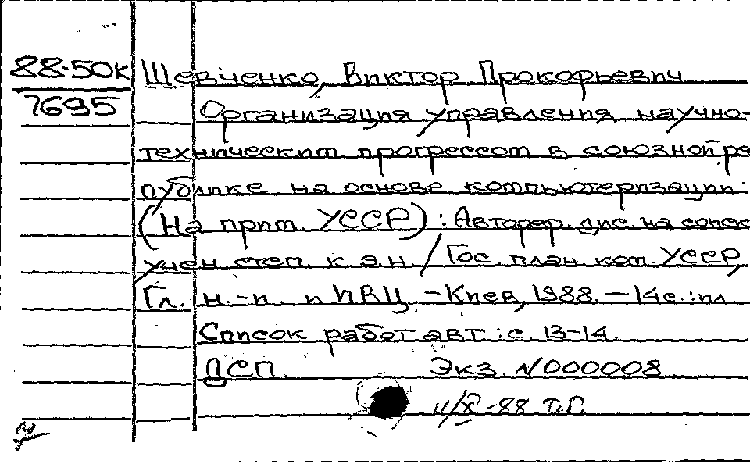 88-50к Шевченко, Виктор Прокофьевич
7695 Организация управления научно-
техническим прогрессом в союзной рес
публике на основе компьютеризации:
(На прим. УССР) : Автореф. дис. на соиск
учен степ. к.э.н / Гос. план ком УССР,
Гл. н.-и. и ИВЦ. - Киев, 1988. - 14с.:ил
Список работ авт.: с. 13-14.
ДСП. Экз. N000008
11/X-88